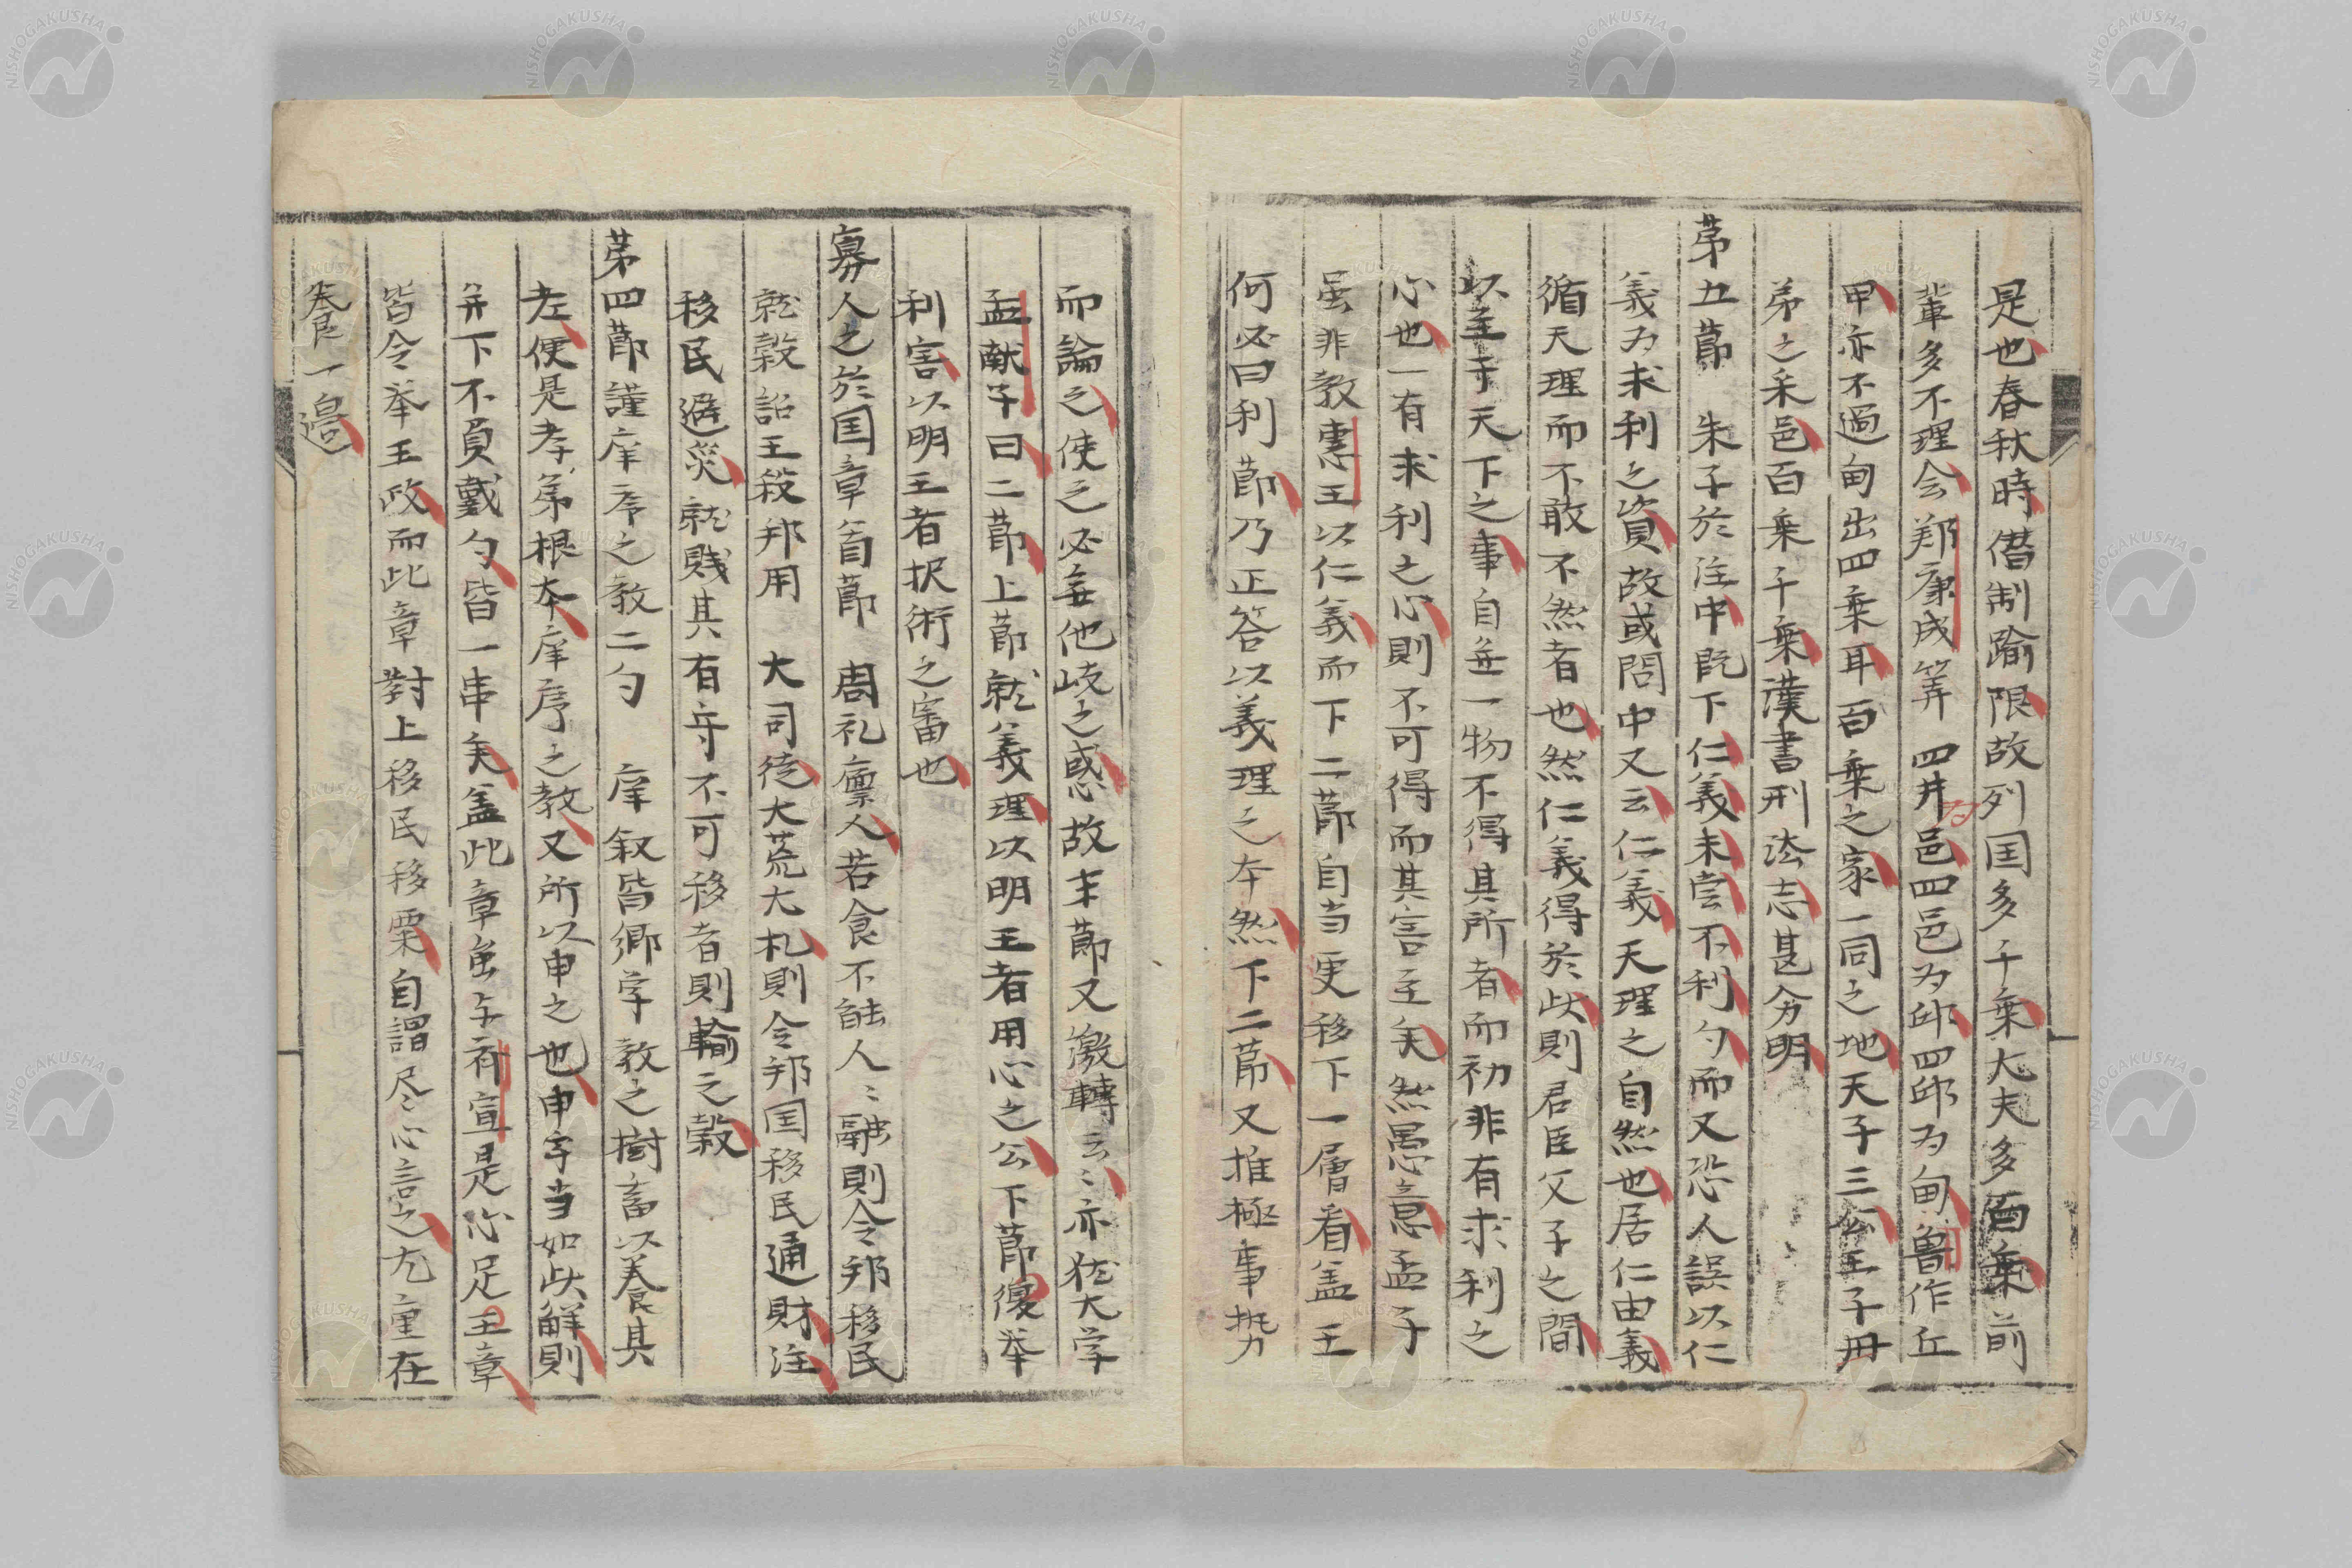 是也春秋時僭制踰限故列国多千乗大夫多百乗前
輩多不理会鄭康成筭四井為邑四邑为邱四邱为甸魯作丘
甲亦不過甸出四乗耳百乗之家一同之地天子三公王子母
弟之采邑百乗千乗漢書刑法志甚分明
第五節　朱子於注中既下仁義未嘗不利勺而又恐人誤以仁
義为求利之資故或問中又云仁義天理之自然也居仁由義
循天理而不敢不然者也然仁義得於此則君臣父子之間
以至于天下之事自無一物不得其所者而初非有求利之
心也一有求利之心則不可得而其害至矣然愚意孟子
虽非教惠王以仁義而下二節自当更移下一層看盖王
何必曰利節乃正答以義理之本然下二節又推極事势
而論之使之必無他岐之惑故末節又激轉云〻亦犹大学
孟献子曰二節上節就義理以明王者用心之公下節復举
利害以明王者択術之審也
寡人之於国章首節　周礼廪人若食不能人〻鬴則令邦移民
就穀詔王殺邦用　大司徒大荒大札則令邦国移民通財注
移民避災就賎其有守不可移者則輸之穀
第四節謹庠序之教二勺　庠叙皆郷学教之樹畜以养其
老便是孝弟根本庠序之教又所以申之也申字当如此解則
并下不負戴勺皆一串矣盖此章虽与齐宣是心足王章
皆令举王政而此章對上移民移粟自謂尽〻心言之尢重在
养一邉